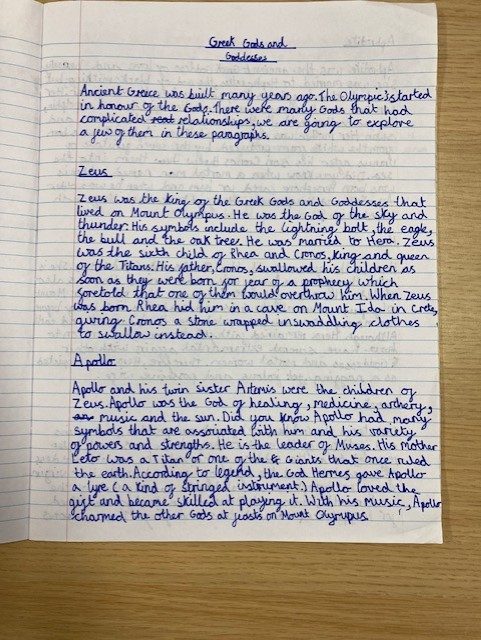 Greek Gods and
Goddesses
Ancient Greece was built many years ago. The Olympic's started
in honour of the Gods. There were many Gods that had
complicated relationships, we are going to explore
a few of them in these paragraphs.
Zeus
Zeus was the King of the Greek Gods and Goddesses that
lived on Mount Olympus. He was the God of the sky and
thunder. His symbols include the lightning bolt, the eagle,
the bull and the oak trees. He was married to Hera. Zeus
was the sixth child of Rhea and Cronos, King and queen
of the Titans. His father, Cronos, swallowed his children as
soon as they were born for fear of a prophecy which
foretold that one of them would overthrow him. When Zeus
was born Rhea hid him in a cave on Mount Ida in Crete,
giving Cronos a stone wrapped in swaddling clothes
to swallow instead.
Apollo
Apollo and his twin sister Artemis were the children of
Zeus. Apollo was the God of healing, medicine, archery,
music and the sun. Did you know Apollo had many
symbols that are associated with him and his variety
of powers and strengths. He is the leader of Muses. His mother
Leto was a Titan or one of the Giants that once ruled
the earth. According to legend, the God Hermes gave Apollo
a lyre (a kind of stringed instrument.) Apollo loved the
gift and became skilled at playing it. With his music, Apollo
charmed the other Gods at feasts on Mount Olympus.